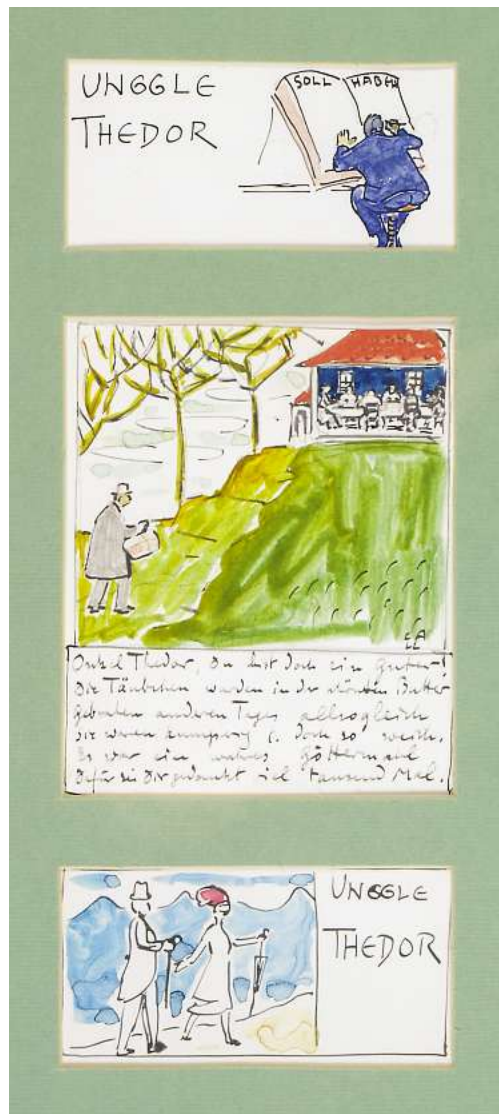 UNGGLE
THEDOR
SOLL HABEN
Onkel Thedor, du bist doch ein Guter!
Die Täubchen wurden in der Butter
gebraten anderen Tages allsogleich
sie waren doch so weich.
Es war ein wahres Göttermahl
Dafür sei Dir gedankt viel tausend Mal.
UNGGLE
THEDOR